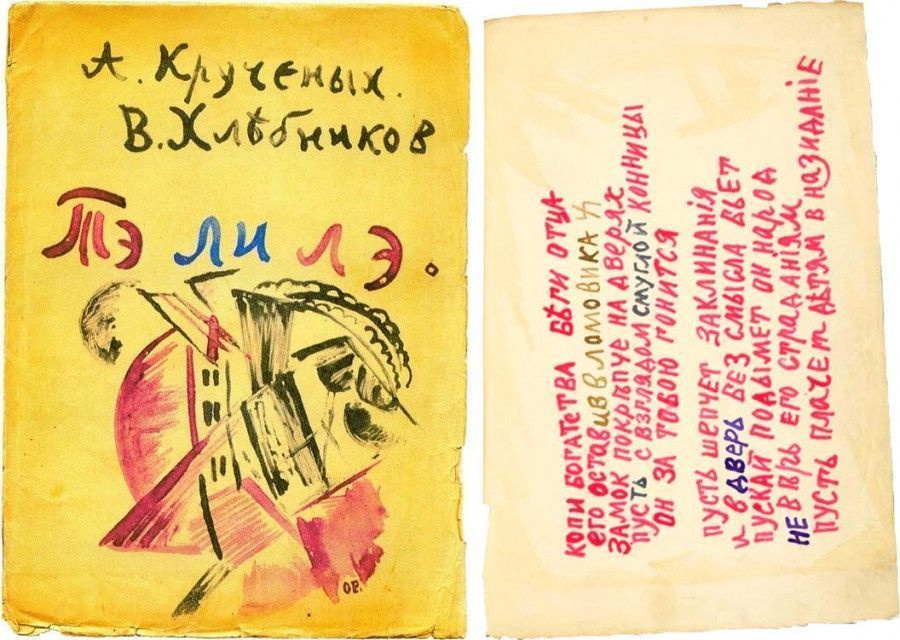 А. Крученых.
В. Хлѣбников
Тэ ли лэ.
ОР.
КОПИ БОГАТСТВА БѢГИ ОТЦА
ЕГО ОСТАВИВ В ЛОМОВИКАХ
ЗАМОК ПОКРѢПЧЕ НА ДВЕРЯХ
ПУСТЬ С ВЗГЛЯДОМ СМУГЛОЙ КОННИЦЫ
ОН ЗА ТОБОЮ ГОНИТСЯ
ПУСТЬ ШЕПЧЕТ ЗАКЛИНАНІЯ
И В ДВЕРЬ БЕЗ СМЫСЛА БЬЕТ
ПУСКАЙ ПОДЫМЕТ ОН НАРОД
НЕ ВѢРЬ ЕГО СТРАДАНІЯМ
ПУСТЬ ПЛАЧЕТ ДѢТЯМ В НАЗИДАНІЕ